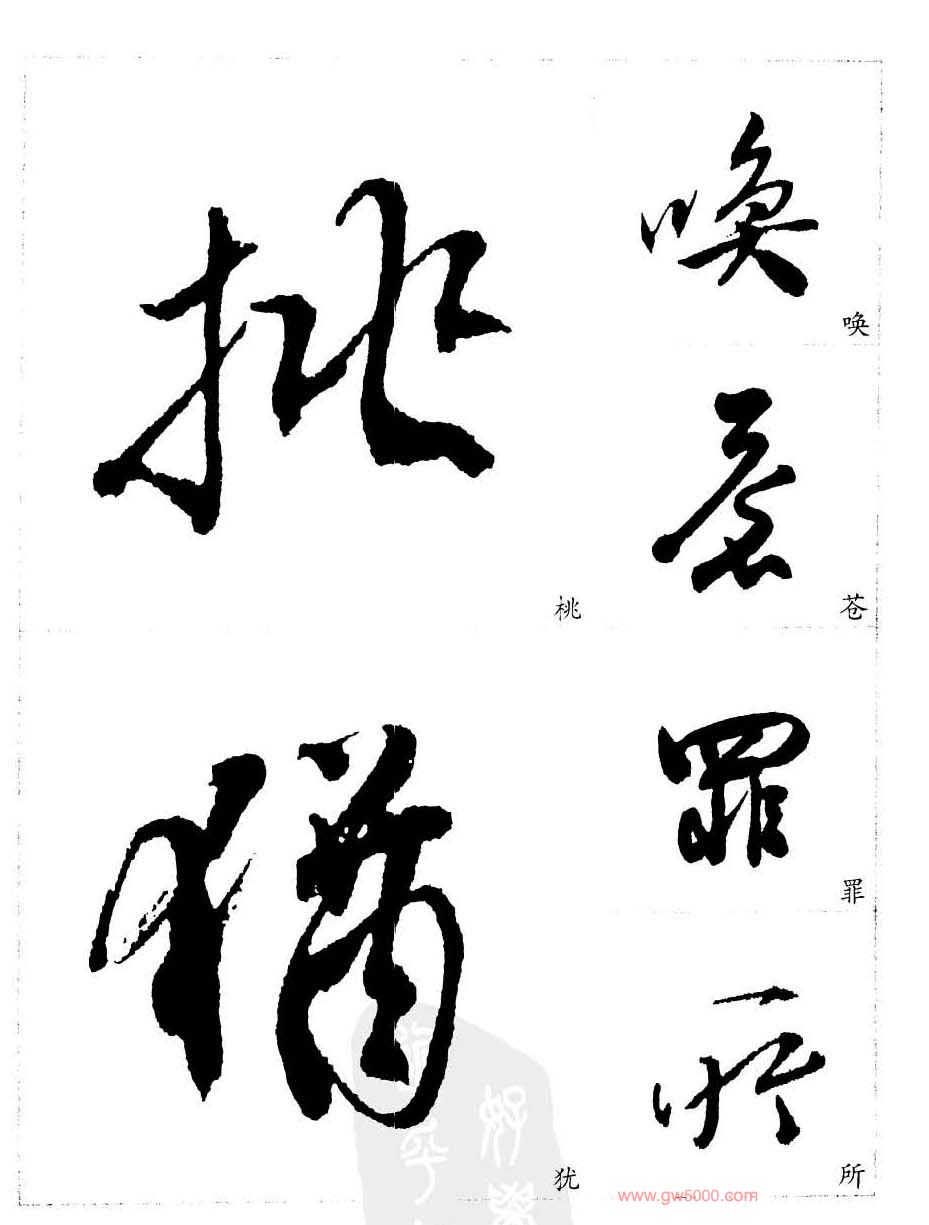 喚
唤
蒼
苍
罪
罪
所
所
桃
桃
猶
犹
www.gw5000.com